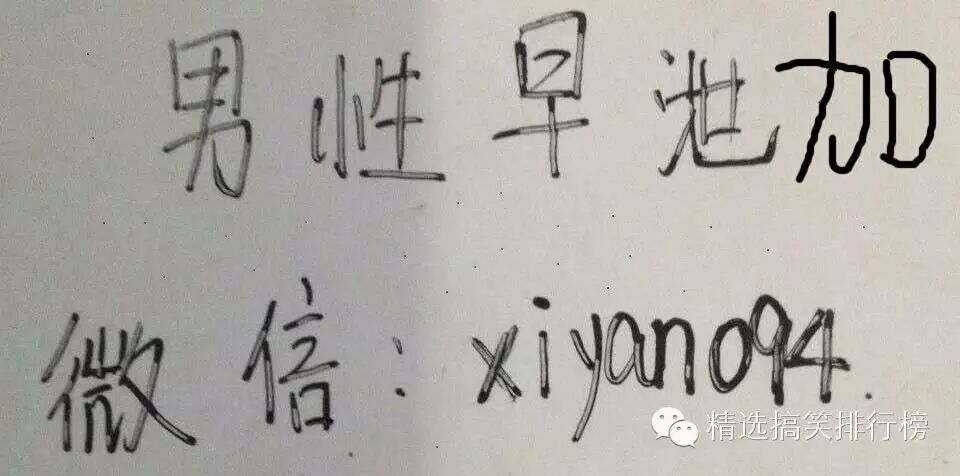 男性早泄加
微信：xiyan094.
精选搞笑排行榜